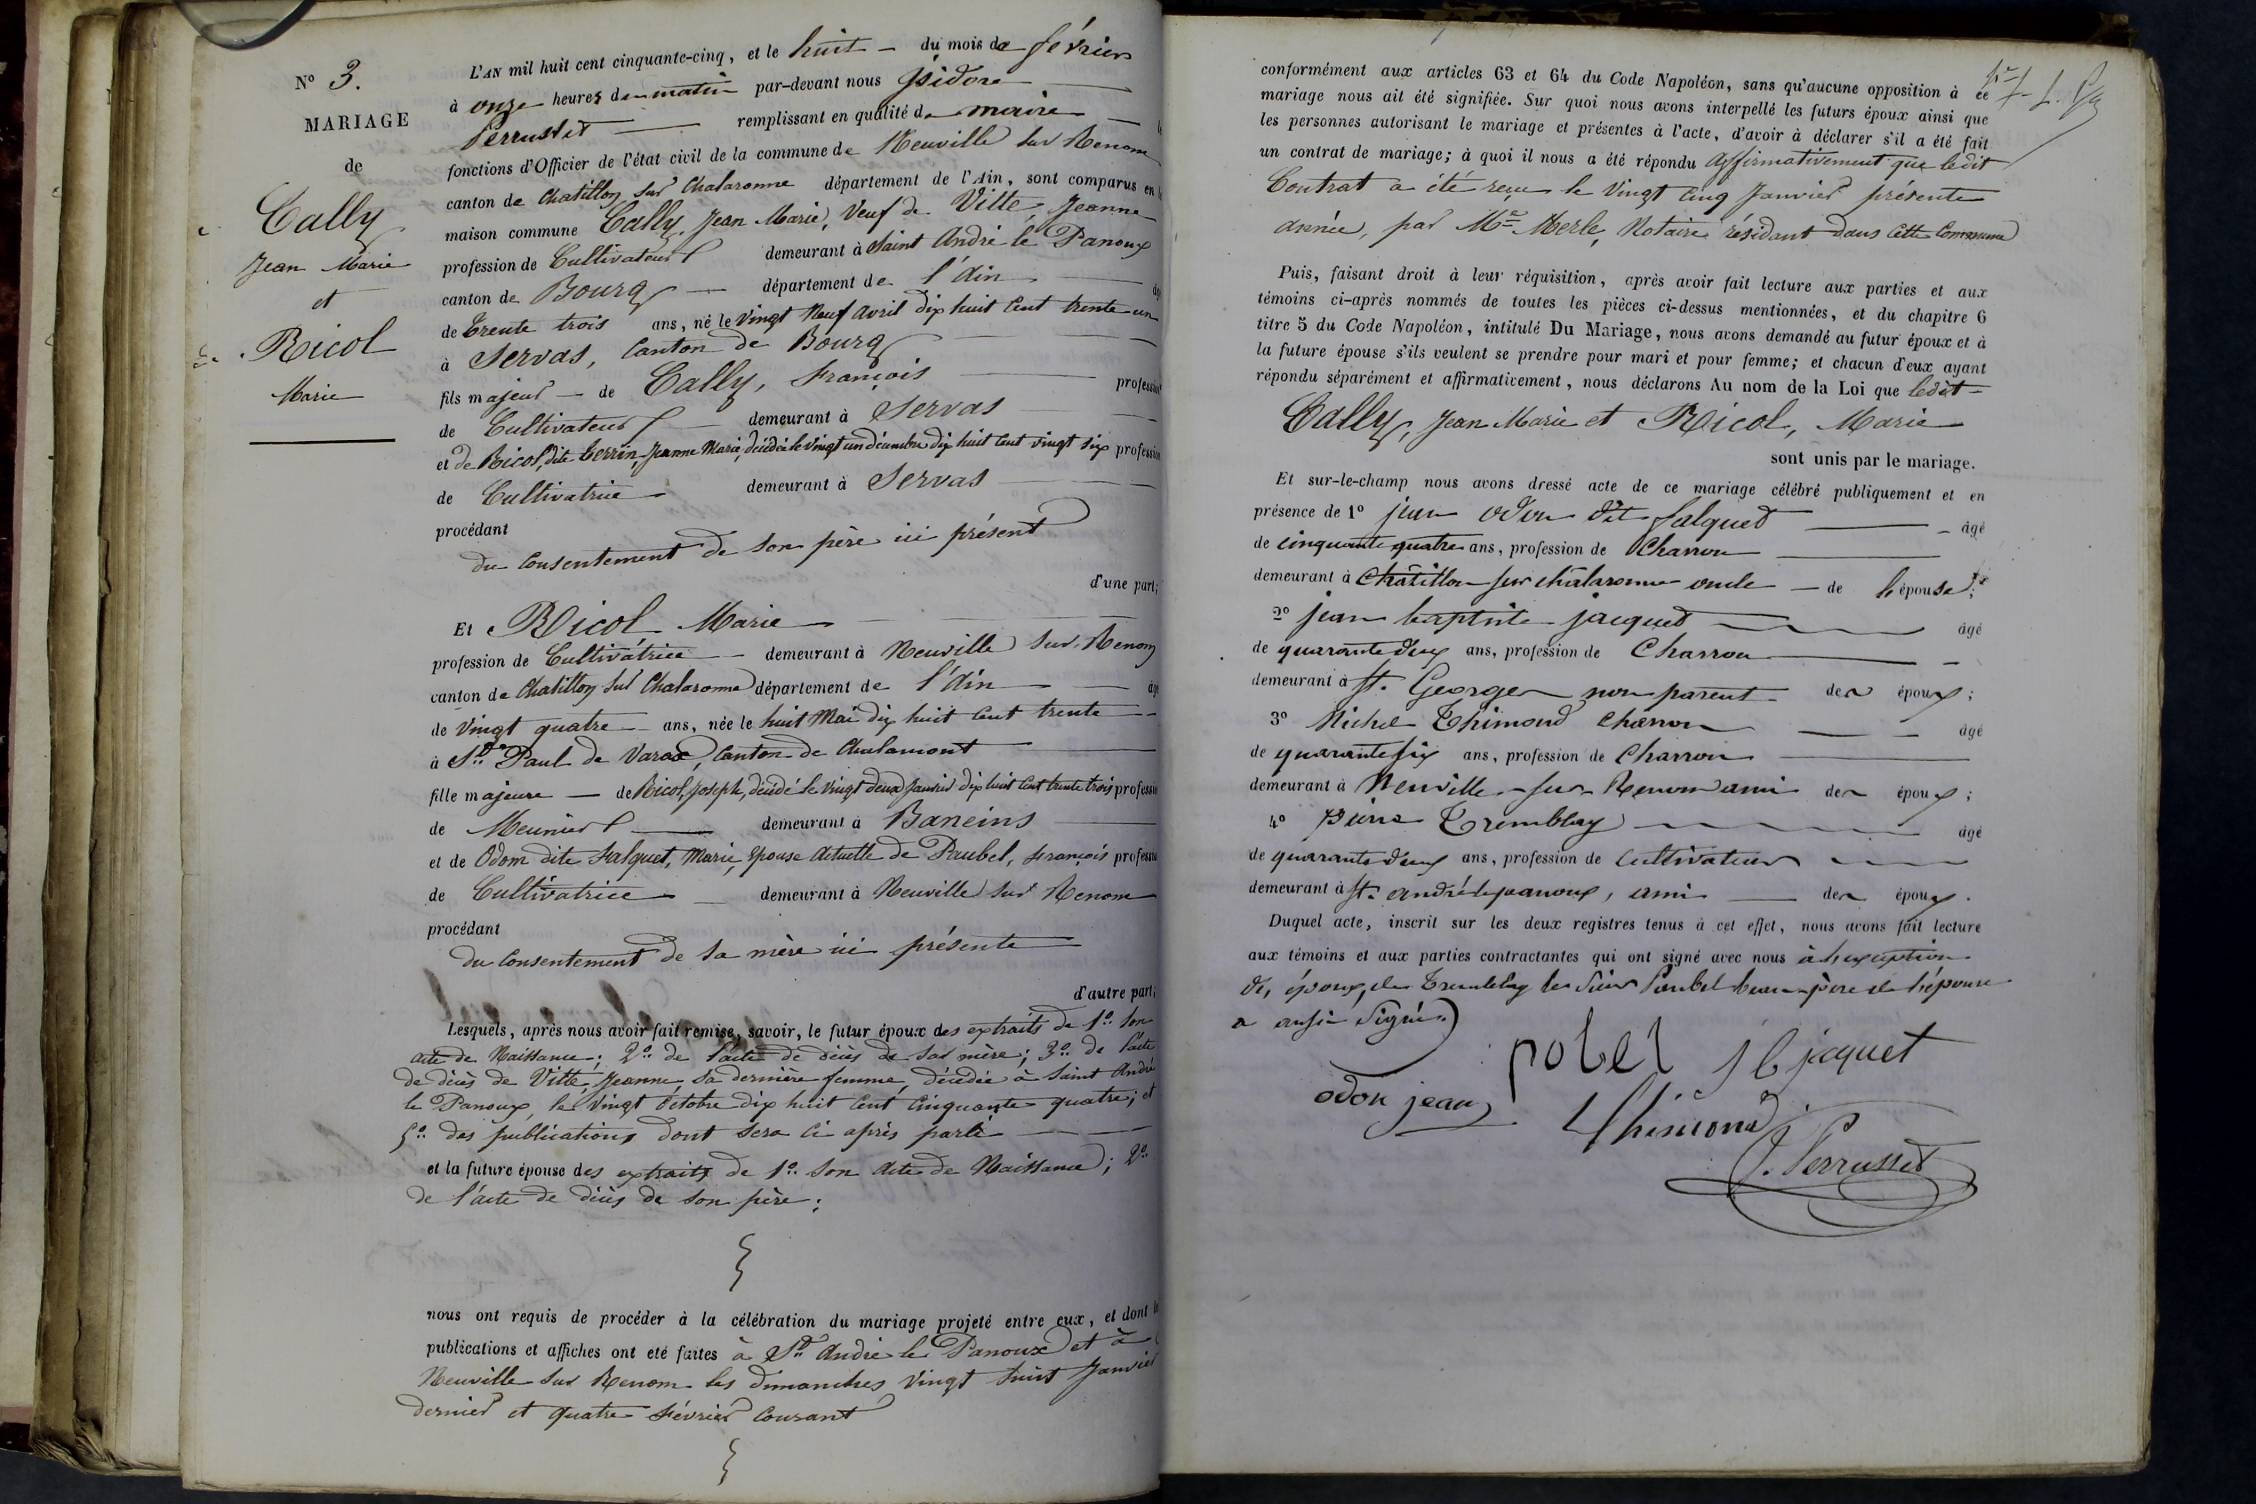 N° 3.
MARIAGE
de
Cally
Jean Marie
et
Ricol
Marie
L'AN mil huit cent cinquante-cinq, et le huit du mois de février
à onze heures du matin par-devant nous Isidore
Perrusset remplissant en qualité de maire
fonctions d'Officier de l'état civil de la commune de Neuville sur Renom
canton de Chatillon sur Chalaronne département de l'Ain, sont comparus en
maison commune Cally, Jean Marie, Veuf de Ville, Jeanne
profession de Cultivateur demeurant à Saint André le Panoux
canton de Bourg département de l'Ain
de trente trois ans, né le Vingt Neuf avril dix huit cent trente un
à Servas, canton de Bourg
fils majeur de Cally, François profession
de Cultivateur demeurant à Servas
et de Ricol, dite Perrin, Jeanne Marie, décédée le vingt un décembre dix huit cent vingt six profession
de Cultivatrice demeurant à Servas
procédant
du consentement de son père ici présent
d'une part;
Et Ricol Marie
profession de Cultivatrice demeurant à Neuville sur Renom
canton de Chatillon sur Chalaronne département de l'Ain
de Vingt quatre ans, née le huit Mai dix huit cent trente
à St. Paul de Varax, canton de Chalamont
fille majeure de Ricol, Joseph, décédé le vingt deux Janvier dix huit cent trente trois profession
de Meunier demeurant à Baneins
et de Odom dite Falquet, Marie, épouse actuelle de Paubel, François profession
de Cultivatrice demeurant à Neuville sur Renom
procédant
du consentement de sa mère ici présente
d'autre part;
Lesquels, après nous avoir fait remise, savoir, le futur époux des extraits de 1° son
acte de Naissance; 2° de l'acte de décès de sa mère; 3° de l'acte
de décès de Ville, Jeanne, sa dernière femme, décédée à Saint André
le Panoux, le vingt Octobre dix huit cent cinquante quatre; et
5° des publications dont sera ci après parlé
et la future épouse des extraits de 1° son acte de Naissance; 2°
de l'acte de décès de son père;
nous ont requis de procéder à la célébration du mariage projeté entre eux, et dont
publications et affiches ont été faites à St. André le Panoux et à
Neuville sur Renom les dimanches vingt huit Janvier
dernier et quatre Février courant
conformément aux articles 63 et 64 du Code Napoléon, sans qu'aucune opposition à ce
mariage nous ait été signifiée. Sur quoi nous avons interpellé les futurs époux ainsi que
les personnes autorisant le mariage et présentes à l'acte, d'avoir à déclarer s'il a été fait
un contrat de mariage; à quoi il nous a été répondu affirmativement que ledit
Contrat a été reçu le Vingt Cinq Janvier présente
année, par Me Merle, Notaire résidant dans cette Commune
Puis, faisant droit à leur réquisition, après avoir fait lecture aux parties et aux
témoins ci-après nommés de toutes les pièces ci-dessus mentionnées, et du chapitre 6
titre 5 du Code Napoléon, intitulé Du Mariage, nous avons demandé au futur époux et à
la future épouse s'ils veulent se prendre pour mari et pour femme; et chacun d'eux ayant
répondu séparément et affirmativement, nous déclarons Au nom de la Loi que ledit
Cally, Jean Marie et Ricol, Marie
sont unis par le mariage.
Et sur-le-champ nous avons dressé acte de ce mariage célébré publiquement et en
présence de 1° jean odon dit falquet âgé
de cinquante quatre ans, profession de Charron
demeurant à Châtillon sur chalaronne oncle de l'épouse;
2° jean baptiste jacquet âgé
de quarante deux ans, profession de Charron
demeurant à St. George non parent des époux;
3° Michel Thimond charron âgé
de quarante six ans, profession de Charron
demeurant à Neuville sur Renom ami des époux;
4° Pierre Tremblay âgé
de quarante deux ans, profession de cultivateur
demeurant à St. andré le panoux, ami des époux.
Duquel acte, inscrit sur les deux registres tenus à cet effet, nous avons fait lecture
aux témoins et aux parties contractantes qui ont signé avec nous à l'exception
des époux, de Tremblay le sieur Paubel beau-père de l'épouse
a aussi signé
pobel J b jaquet
odon jean Thimond
I. Perrusset